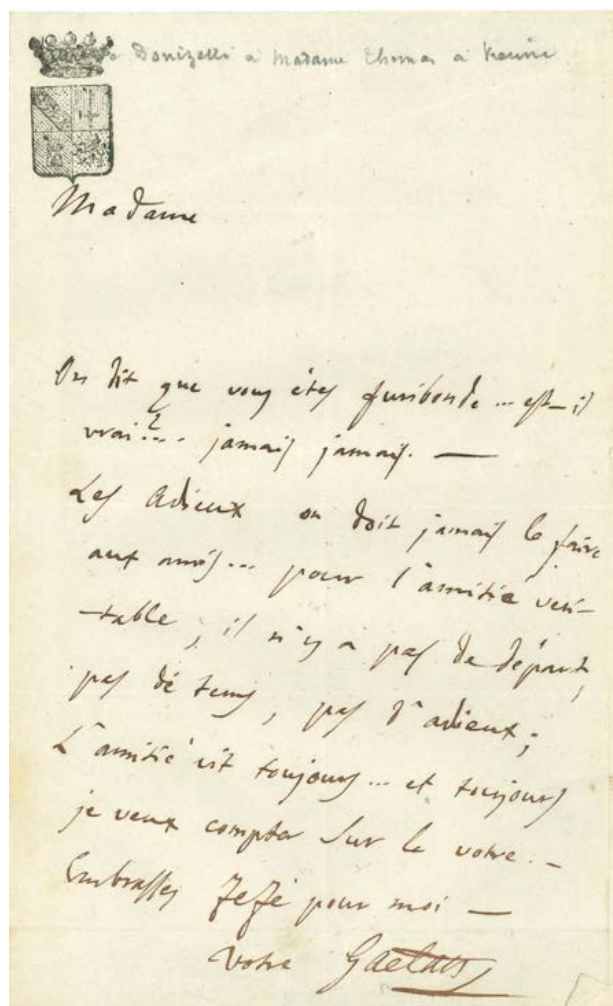 Donizetti a Madame Thomas a Vienne
Madame
On dit que vous êtes furibonde ... est-il
vrai?.. jamais jamais. —
Les Adieux on doit jamais le faire
aux amis... pour l'amitié veri-
-table, il n'y a pas de départ,
pas dé tems, pas d'adieux;
L'amitié vit toujours... et toujours
je veux compter sur la votre. —
Embrasses Zezé pour moi —
Votre Gaetano